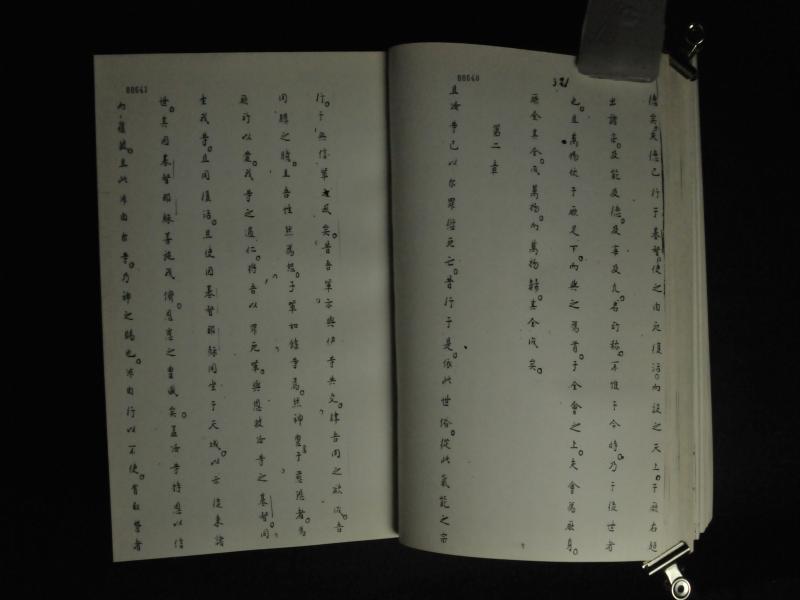 00640
321
德矣。夫德已行于基督。使之由死復活。而設之天上。于厥右超
出諸宗。及能及德。及宰及凡名可稱。不惟于今時。乃于後世者
也。且萬物伏于厥足下。而與之為首。于全會之上。夫會為厥身。
厥全其全。成萬物。而萬物歸其全成矣。
第二章
且汝等已以尔罪愆死亡。昔行于是。依此世俗。從此氣能之宗
00641
行。于無信輩之成矣。昔吾輩亦與伊等共交。肆吾肉之欲。成吾
肉體之隨。且吾性然為怒。子輩如餘等焉。然神豐于慈恩者。為
厥所以愛。我等之過仁。將吾以罪死輩。與恩救汝等之基督。同
生我等。且同復活。且使因基督耶穌同坐于天域。以示後來諸
世。其因基督耶穌善施我儕。恩惠之豐盛矣。蓋汝等特恩以信
而獲救。且此非由尔等。乃神之賜也。非由行以不使。有自譽者